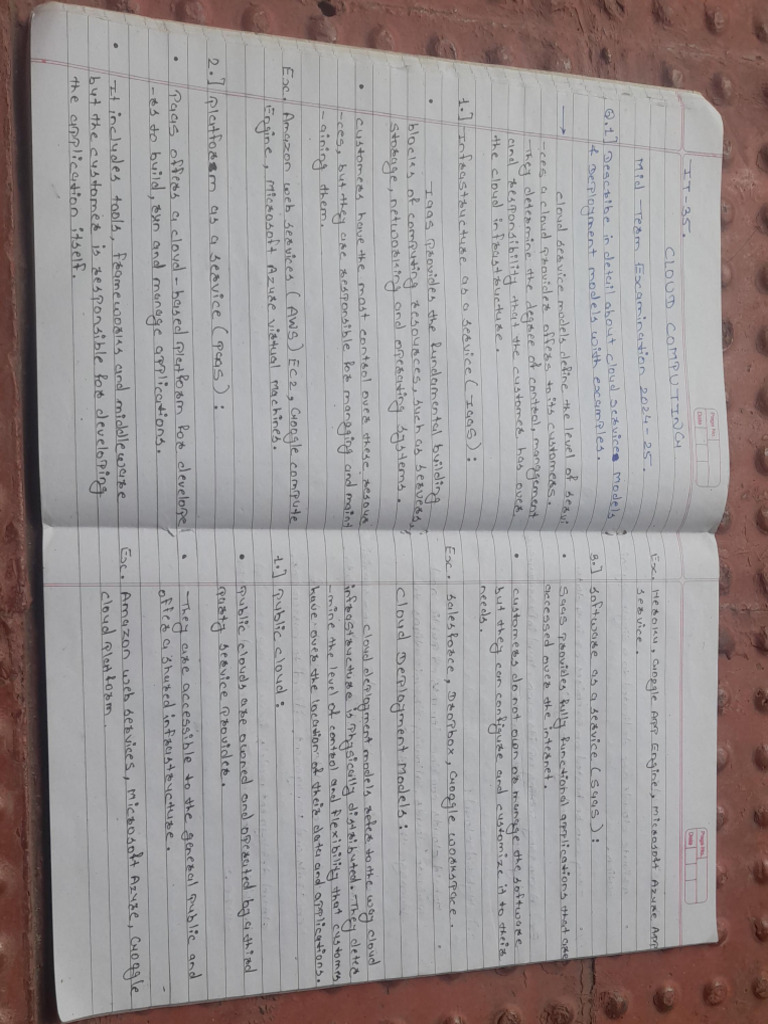 Page No.
Date
IT-35.
CLOUD COMPUTING
Mid-Term Examination 2024-25.
Q.1] Describe in detail about cloud service models
& Deployment models with examples.
→ cloud service models define the level of servi-
-ces a cloud provider offers to its customers.
-They determine the degree of control, management
and responsibility that the customer has over
the cloud infrastructure.
1.] Infrastructure as a service (IaaS):
• Iaas provides the fundamental building
blocks of computing resources, such as servers,
storage, networking and operating systems.
• customers have the most control over these resour
-ces, but they are responsible for managing and maint
-aining them.
Ex. Amazon web services (AWS) EC2, Google compute
Engine, Microsoft Azure virtual Machines.
2.] platform as a service (PaaS):
• Paas offers a cloud-based platform for develope
-rs to build, run and manage applications.
• It includes tools, frameworks and middleware
but the customer is responsible for developing
the application itself.
Page No.
Date
Ex. Heroku, Google App Engine, Microsoft Azure App
service.
3.] software as a service (SaaS):
• Saas provides fully functional applications that are
accessed over the internet.
• customers do not own or manage the software
but they can configure and customize it to their
needs.
Ex. salesforce, Dropbox, Google workspace.
Cloud Deployment Models:
cloud deployment models refer to the way cloud
infrastructure is physically distributed. -They deter
-mine the level of control and flexibility that customers
have over the location of their data and applications.
1.] public cloud:
• public clouds are owned and operated by a third
party service provider.
• -They are accessible to the general public and
offer a shared infrastructure.
Ex. Amazon web services, Microsoft Azure, Google
cloud platform.